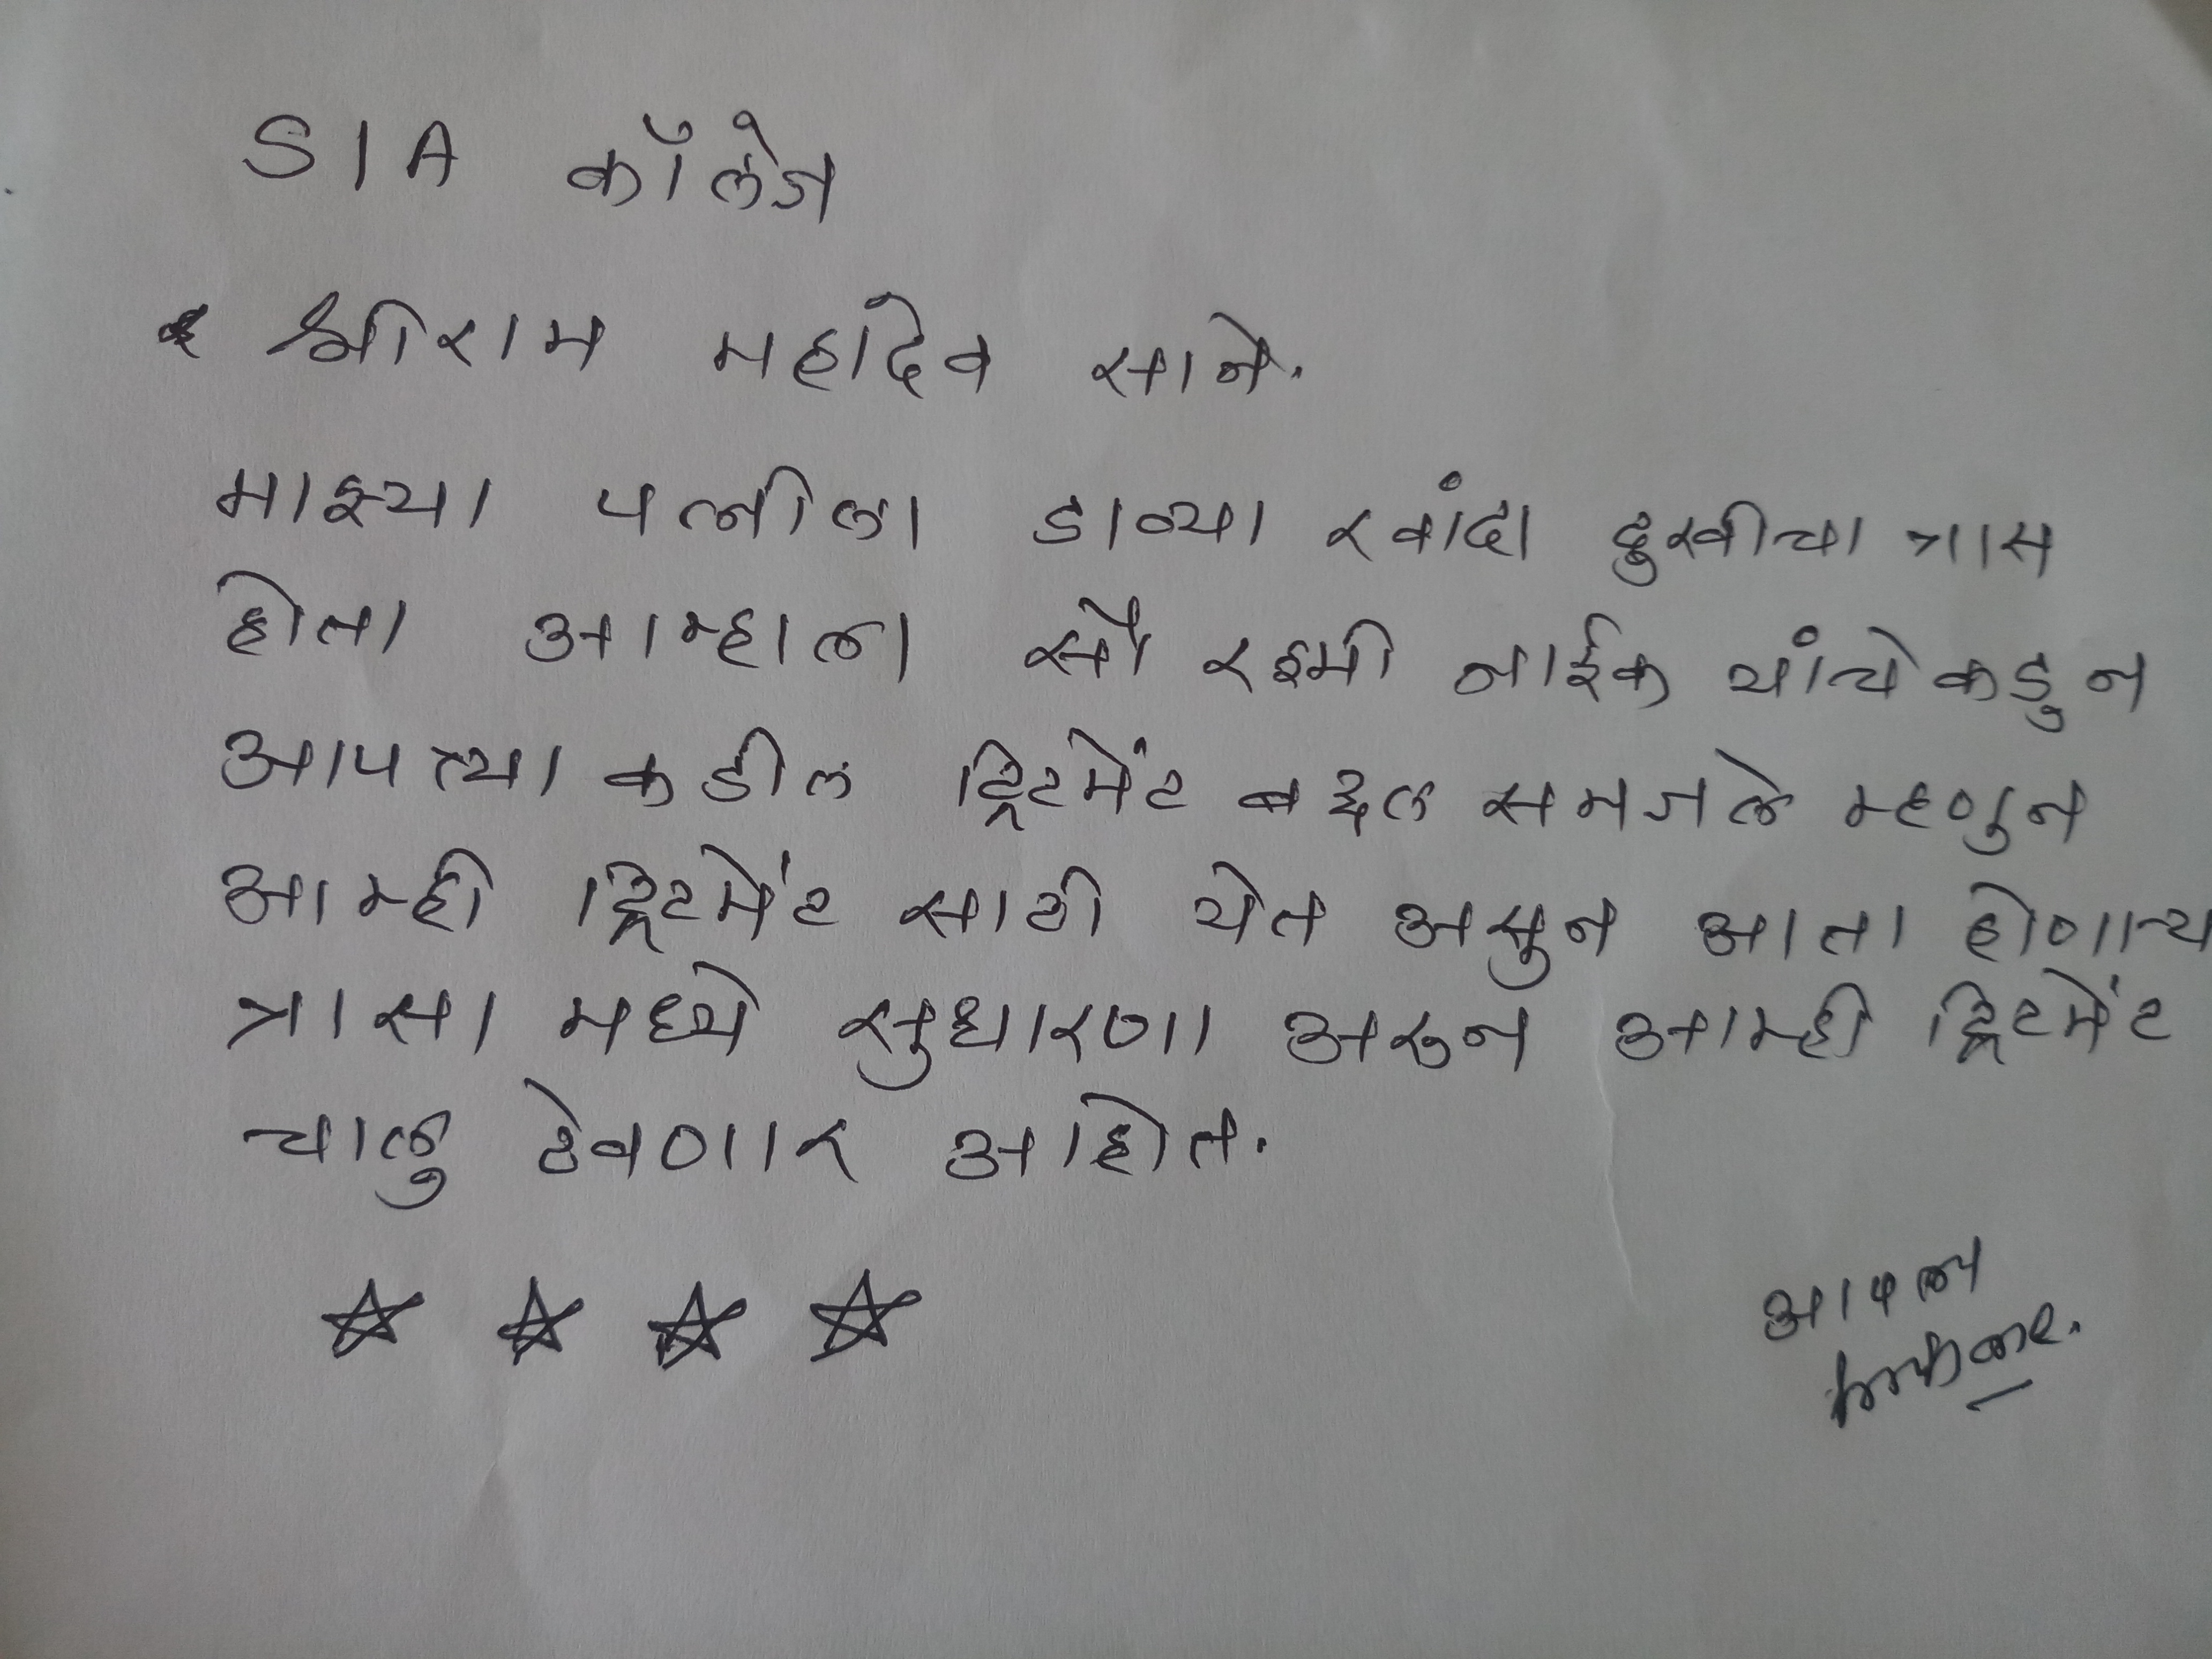 SIA कॉलेज
श्रीराम महादेव साने.
माझ्या पत्नीला डाव्या खांदा दुखीचा त्रास
होता आम्हाला सौ रश्मी नाईक यांचेकडुन
आपल्या कडील ट्रिटमेंट बद्दल समजले म्हणुन
आम्ही ट्रिटमेंट साठी येत असुन आता होणाऱ्य
त्रासा मध्ये सुधारणा असुन आम्ही ट्रिटमेंट
चालु ठेवणार आहोत.
आपला